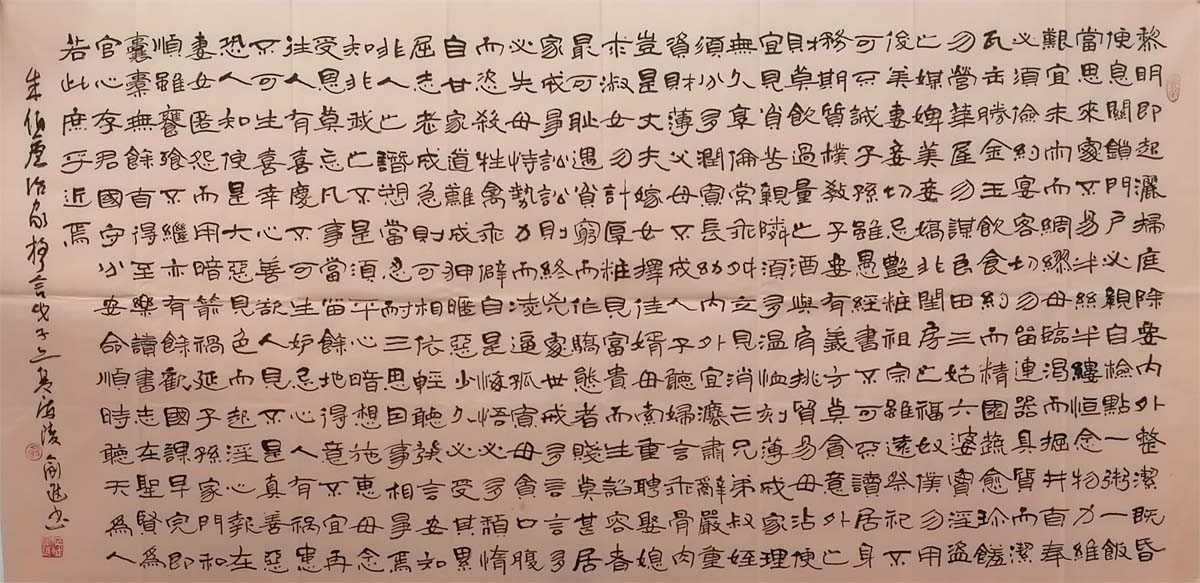 黎明即起灑掃庭除要內外整潔既昏
便息關鎖門戶必親自檢點一粥一飯
當思來處不易半絲半縷恒念物力維
艱宜未雨而綢繆毋臨渴而掘井自奉
必須儉約宴客切勿留連器具質而潔
瓦缶勝金玉飲食約而精園蔬愈珍饈
勿營華屋勿謀良田三姑六婆實淫盜
之媒婢美妾嬌非閨房之福奴僕勿用
俊美妻妾切忌艷粧祖宗雖遠祭祀不
可不誠子孫雖愚經書不可不讀居身
務期質樸教子要有義方莫貪意外之
財莫飲過量之酒與肩挑貿易毋沾便
宜見貧苦親鄰須多溫恤刻薄成家理
無久享倫常乖舛立見消亡兄弟叔姪
須分多潤寡長幼內外宜灋肅辭嚴重
資財薄父母不成人子聽婦言乖骨肉
豈是丈夫嫁女擇佳婿毋索重聘娶媳
求淑女勿計厚粧見富貴而生諂容者
最可恥遇貧窮而作驕態者賤莫甚居
家戒爭訟訟則終凶處世戒多言言多
必失毋恃勢力而淩逼孤寡毋貪口腹
而恣殺牲禽乖僻自是悔悟必多頹惰
自甘家道難成狎暱惡少久必受其累
屈志老成急則可相依輕聽發言安知
非人之譖愬當忍耐三思因事相爭焉
知非我之不是須平心暗想施惠毋念
受恩莫忘凡事當留餘地得意不宜再
往人有喜慶不可生妒忌心人有禍患
不可生喜幸心善欲人見不是真善惡
恐人知便是大惡見色而起淫心報在
妻女匿怨而用暗箭禍延子孫家門和
順雖饔飧不繼亦有餘歡國課早完即
囊橐無餘自得至樂讀書志在聖賢為
官心存君國守分安命順時聽天為人
若此庶乎近焉
朱伯廬治家格言戊子之夏涪陵